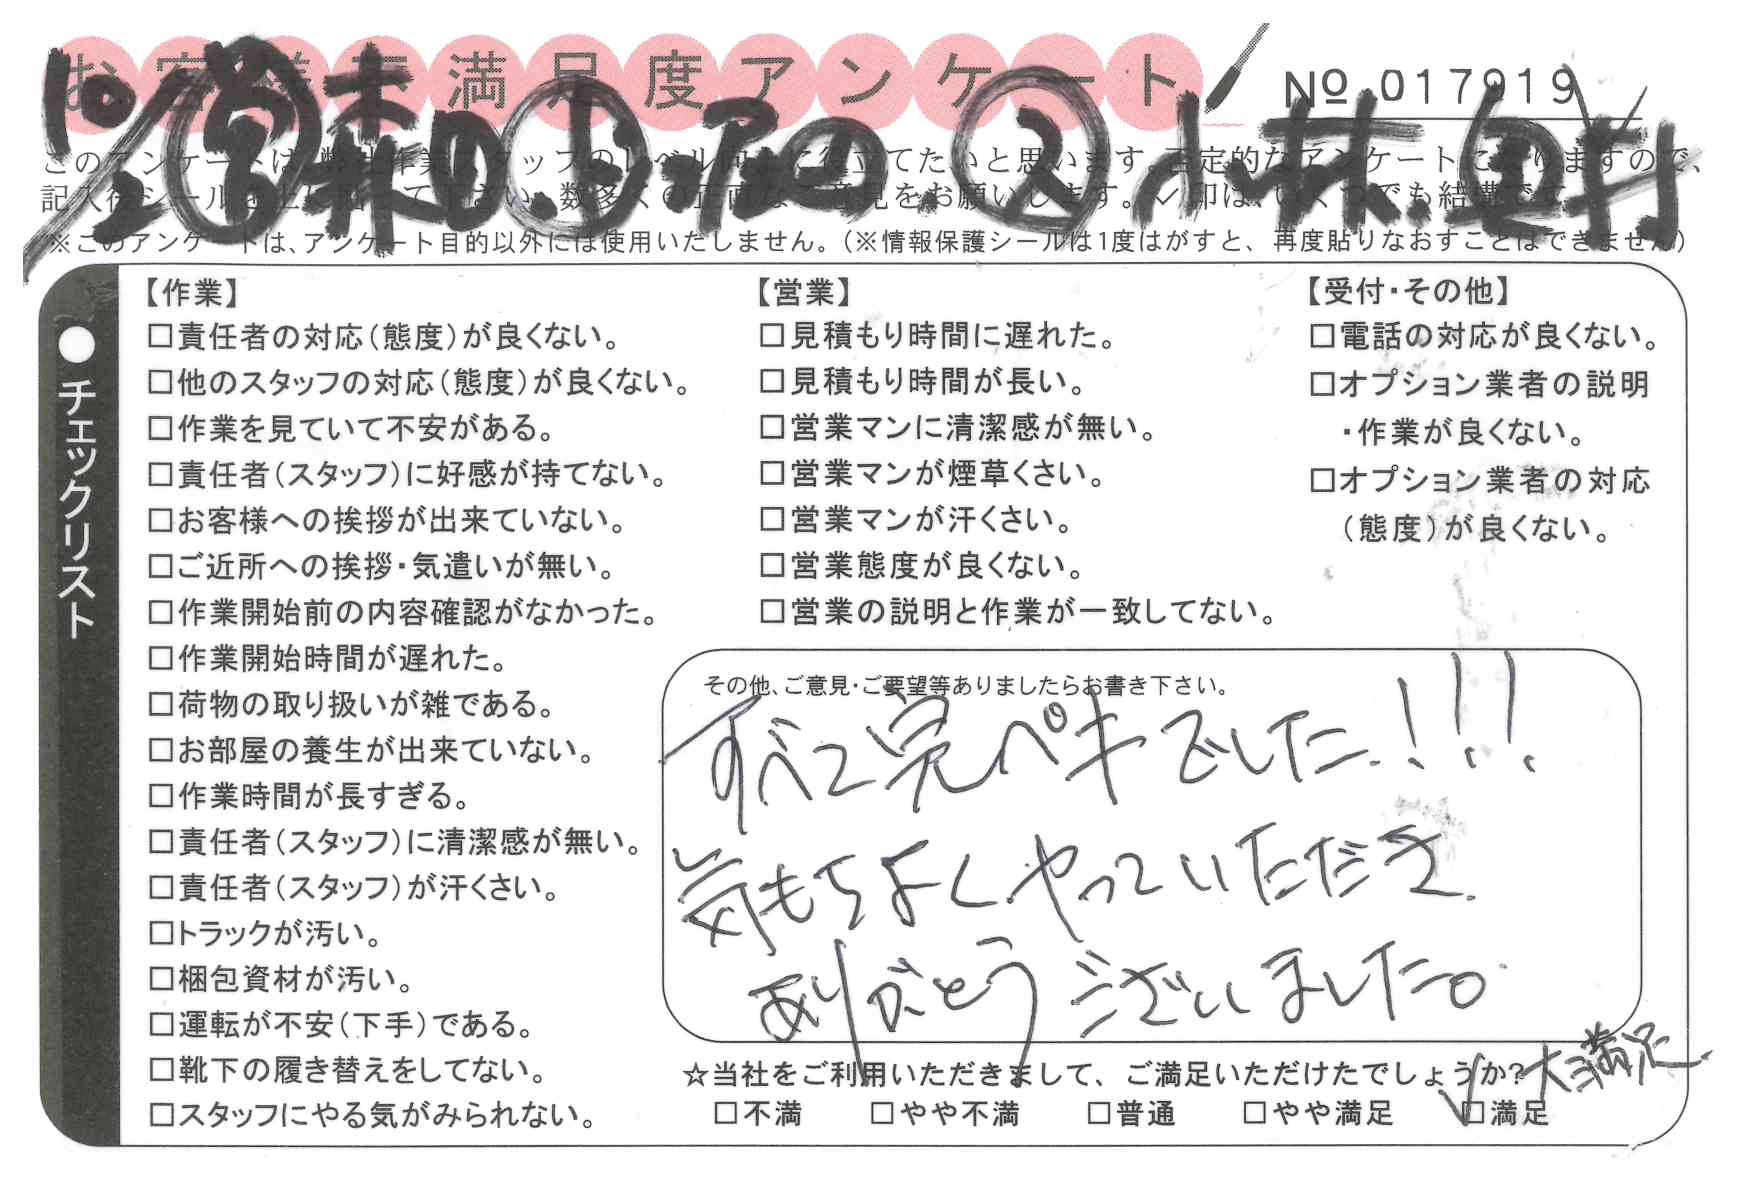 お客様ご満足度アンケート
No 017919
10/2 営 森田 リ 辰巳 メ 小林、奥村
このアンケートは、弊社作業スタッフのレベル向上に役立てたいと思います。否定的なアンケートになりますので、
記入後シールを上に貼って下さい。数多くの正直なご意見をお願いします。✓印は、いくつでも結構です。
※このアンケートは、アンケート目的以外には使用いたしません。(※情報保護シールは1度はがすと、再度貼りなおすことはできません)
●チェックリスト
【作業】
□責任者の対応(態度)が良くない。
□他のスタッフの対応(態度)が良くない。
□作業を見ていて不安がある。
□責任者(スタッフ)に好感が持てない。
□お客様への挨拶が出来ていない。
□ご近所への挨拶・気遣いが無い。
□作業開始前の内容確認がなかった。
□作業開始時間が遅れた。
□荷物の取り扱いが雑である。
□お部屋の養生が出来ていない。
□作業時間が長すぎる。
□責任者(スタッフ)に清潔感が無い。
□責任者(スタッフ)が汗くさい。
□トラックが汚い。
□梱包資材が汚い。
□運転が不安(下手)である。
□靴下の履き替えをしてない。
□スタッフにやる気がみられない。
【営業】
□見積もり時間に遅れた。
□見積もり時間が長い。
□営業マンに清潔感が無い。
□営業マンが煙草くさい。
□営業マンが汗くさい。
□営業態度が良くない。
□営業の説明と作業が一致してない。
【受付・その他】
□電話の対応が良くない。
□オプション業者の説明
・作業が良くない。
□オプション業者の対応
(態度)が良くない。
その他、ご意見・ご要望等ありましたらお書き下さい。
すべて完ペキでした!!!
気もちよくやっていただき
ありがとうございました。
☆当社をご利用いただきまして、ご満足いただけたでしょうか?
大満足
□不満 □やや不満 □普通 □やや満足 □満足